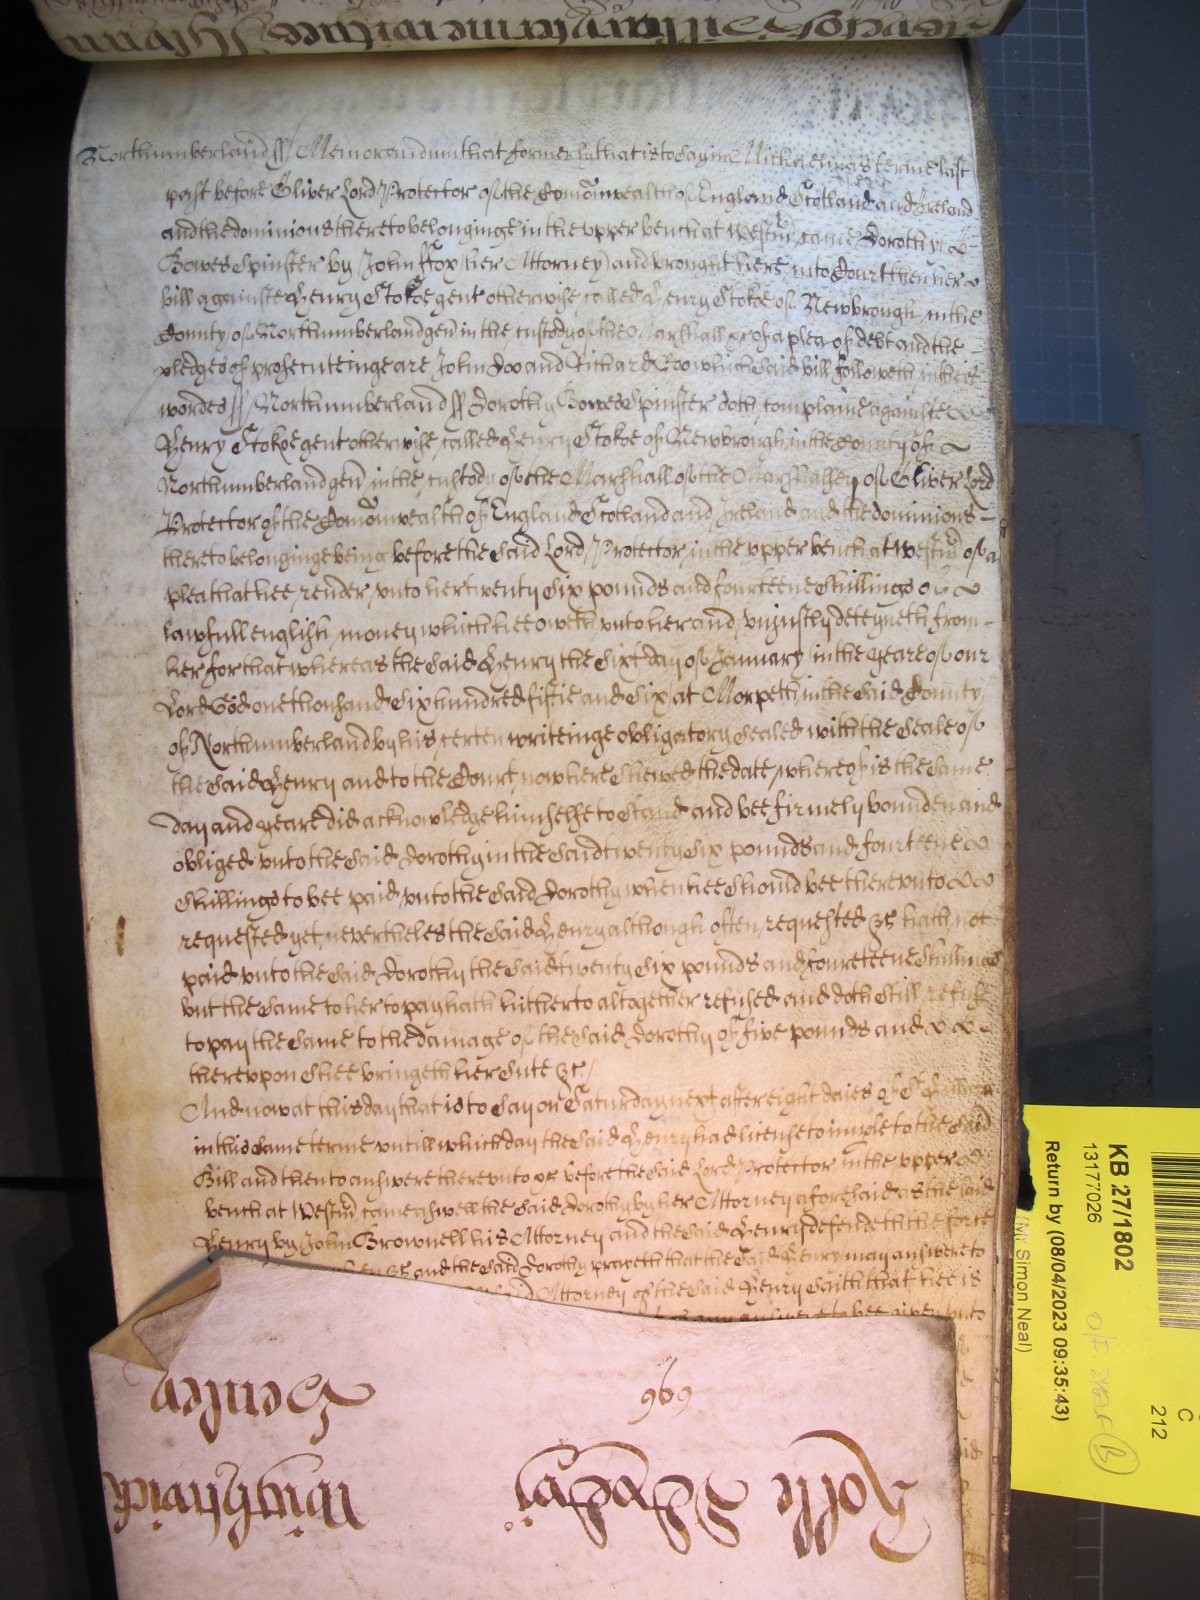 Northumberland ss Memorandum that formerly that is to say in Michaelmas terme last
past before Oliver Lord Protector of the Com̃onwealth of England Scotland and Ireland
and the dominions thereto belonginge in the upper bench at Westm̃ came Dorothy
Bowes Spinster by John Fox her Attorney and brought here into Court then her
bill againste Henry Stokoe gent otherwise called Henry Stokoe of Newbrough in the
County of Northumberland gen̄ in the custody of the Marshall &c of a plea of debt and the
pledges of prosecuteinge are John Doo and Richard Roo which said bill followeth in these
wordes ss Northumberland ss Dorothy Bowes Spinster doth complaine againste
Henry Stokoe gent otherwise called Henry Stokoe of Newbrough in the County of
Northumberland gen̄ in the custody of the Marshall of the Marshalsey of Oliver Lord
Protector of the Com̃onwealth of England Scotland and Ireland and the dominions
thereto belonginge being before the said Lord Protector in the upper bench at Westm̃ of a
plea that hee render unto her twenty six pounds and fourteene shillings of
lawfull english money which hee oweth unto her and uniustly deteyneth from
her for that whereas the said Henry the sixt day of January in the yeare of our
Lord God one thousand six hundred fiftie and six at Morpeth in the said County
of Northumberland by his certen writeinge obligatory sealed with the seale of
the said Henry and to the Court now here shewed the date whereof is the same
day and yeare did acknowledge himselfe to stand and bee firmely bounden and
obliged unto the said Dorothy in the said twenty six pounds and fourteene
shillings to bee paid unto the said Dorothy when hee should bee thereunto
requested yet neverthelesthe said Henry although often requested &c hath not
paid unto the said Dorothy the said twenty six pounds and foureteene shillings
but the same to her to pay hath hitherto altogether refused and doth still refuse
to pay the same to the damage of the said Dorothy of five pounds and
thereupon shee bringeth her sute &c
And now at this day that is to say on Saturday next after eight daies of St
in this same terme untill which day the said Henry had license to imple to the said
Bill and then to answere thereunto &c before the said Lord Protector in the upper
bench at Westm̃ came aswell the said Dorothy by her Attorney aforesaid as the said
Henry by John Brownell his Attorney and the said Henry defendeth the force
&c and the said Dorothy prayeth that the said Henry may answere to
Attorney of the said Henry saith that hee is
to bee given unto
Rolle Scdexvj
969
Wightwick
Henley
KB 27/1802
13177026
Return by (08/04/2023 09:35:43)
(Mr. Simon Neal)
C
212